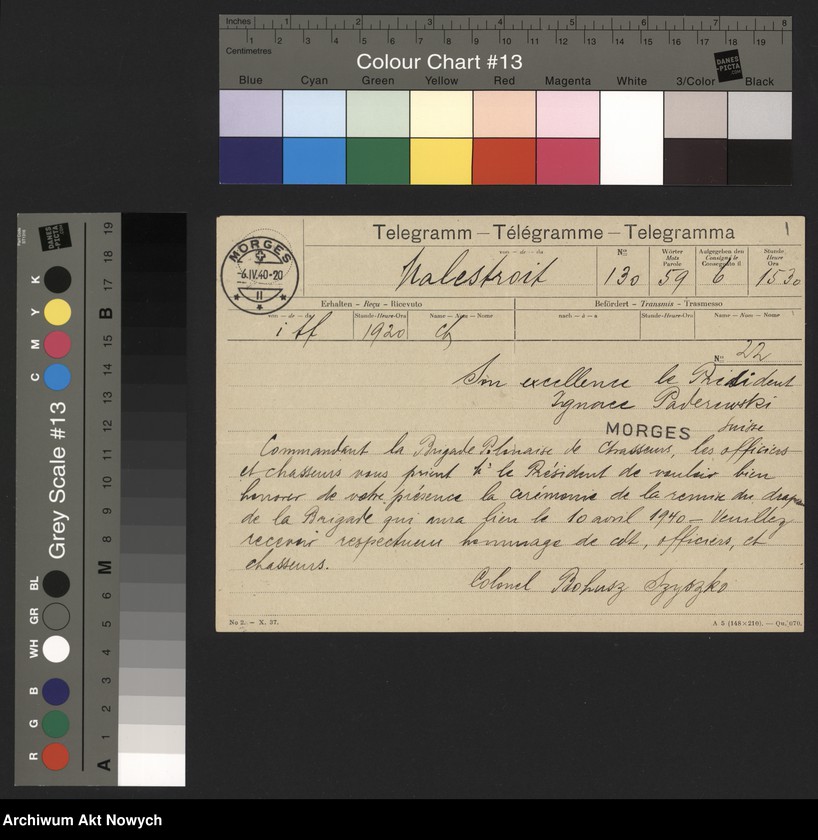 Inches 1 2 3 4 5 6 7 8
Centimetres 1 2 3 4 5 6 7 8 9 10 11 12 13 14 15 16 17 18 19
Colour Chart #13
DANES
-PICTA
.COM
Blue Cyan Green Yellow Red Magenta White 3/Color Black
Grey Scale #13
DANES
-PICTA
.COM
R G B WH GR BL C M Y K
A 1 2 3 4 5 6 M 8 9 10 11 12 13 14 15 B 17 18 19
Telegramm — Télégramme — Telegramma
1
MORGES
-6.IV.40-20
II
von — de — da
Malestroit
No 130
Wörter Mots Parole 59
Aufgegeben den Consigné le Consegnato il 6
Stunde Heure Ora 1530
Erhalten - Reçu - Ricevuto
Befördert - Transmis - Trasmesso
von — de — da Stunde-Heure-Ora Name — Nom — Nome
nach — à — a Stunde-Heure-Ora Name — Nom — Nome
1920
No 22
Son excellence le Président
Ignace Paderewski
MORGES Suisse
Commandant la Brigade Polonaise de Chasseurs, les officiers
et chasseurs vous prient Mr le Président de vouloir bien
honorer de votre présence la cérémonie de la remise du drapeau
de la Brigade qui aura lieu le 10 avril 1940 — Veuillez
recevoir respectueux hommage de cdt, officiers, et
chasseurs.
Colonel Bohusz Szyszko
No 2. — X. 37.
A 5 (148×210). — Qu. 070.
Archiwum Akt Nowych